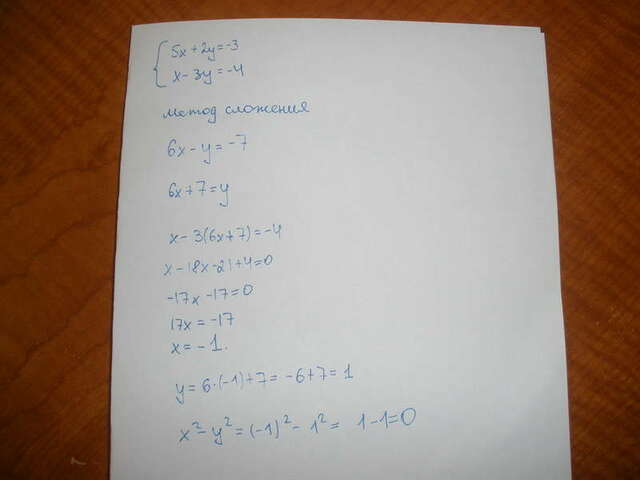 5x+2y=-3
x-3y=-4
метод сложения
6x-y=-7
6x+7=y
x-3(6x+7)=-4
x-18x-21+4=0
-17x-17=0
17x=-17
x=-1.
y=6·(-1)+7=-6+7=1
x²-y²=(-1)²-1²= 1-1=0